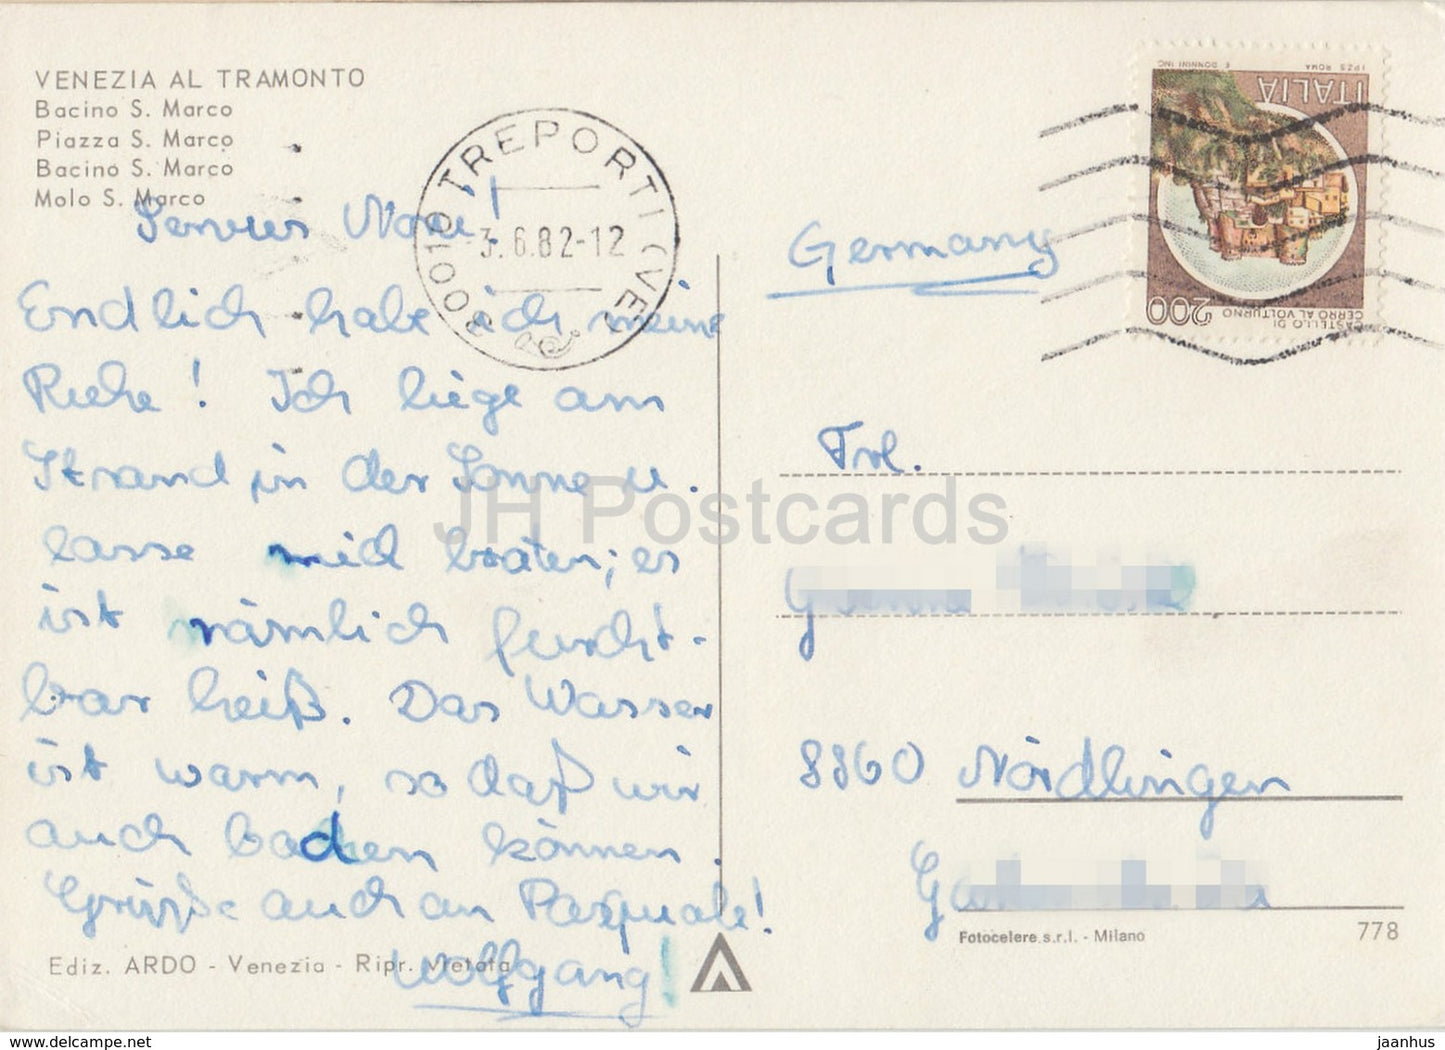 VENEZIA AL TRAMONTO
Bacino S. Marco
Piazza S. Marco
Bacino S. Marco
Molo S. Marco
30010 TREPORTI (VE)
3.6.82-12
I.P.Z.S. ROMA E. DONNINI INC.
ITALIA
200
CASTELLO DI
CERRO AL VOLTURNO
Servus
Endlich habe ich meine
Ruhe! Ich liege am
Strand in der Sonne u.
lasse mich braten; es
ist nämlich furcht-
bar heiß. Das Wasser
ist warm, so daß wir
auch baden können.
Grüße auch an Pasquale!
Wolfgang!
Germany
Frl.
8860 Nördlingen
Ediz. ARDO - Venezia - Ripr. vietata
Fotocelere s.r.l. - Milano
778
JH Postcards
www.delcampe.net
jaanhus